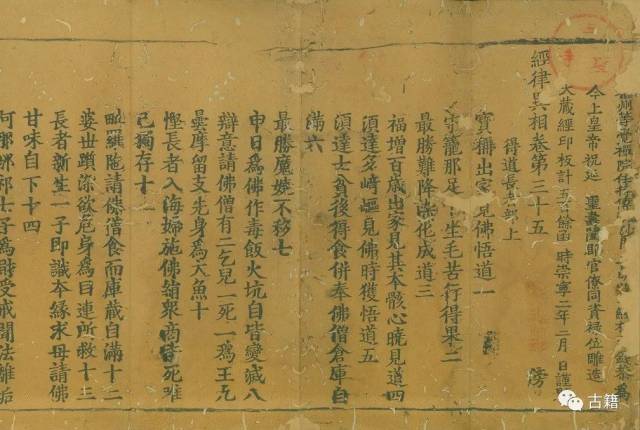 今上皇帝祝延 聖壽闔郡官僚同資祿位雕造
大藏經印板計五百餘函 時崇寧二年二月 日謹題
經律異相卷第三十五
得道長者部上
寶獅出家見佛悟道一
守籠那足下生毛苦行得果二
最勝難降染化成道三
福增百歲出家見其本骸心曉見道四
須達多崎嶇見佛時獲悟道五
須達士貧後得食併奉佛僧倉庫自
滿六
最勝魔嬈不移七
申日為佛作毒飯火坑自皆變滅八
辯意請佛僧有二乞兒一死一為王九
曇摩留支先身為大魚十
慳長者入海婦施佛絹眾商皆死唯
已獨存十一
毗羅陁請佛僧食而庫藏自滿十二
婆世躓深欲危身為目連所救十三
長者新生一子即識本緣求母請佛
甘味自下十四
阿那邠邸七子為財受戒聞法離垢
古籍